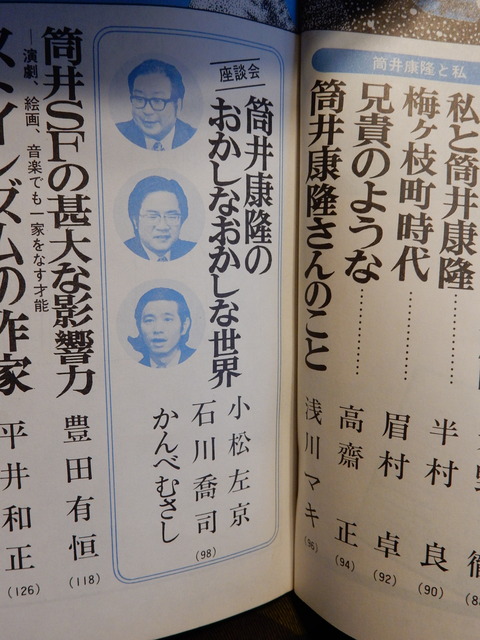 筒井康隆と私
私と筒井康隆……
半村 良
(90)
梅ヶ枝町時代……
眉村 卓
(92)
兄貴のような……
高齋 正
(94)
筒井康隆さんのこと
浅川マキ
(96)
座談会
筒井康隆の
おかしなおかしな世界
小松左京
石川喬司
かんべむさし
(98)
筒井SFの甚大な影響力
―演劇、絵画、音楽でも一家をなす才能
豊田有恒
(118)
の作家
平井和正
(126)